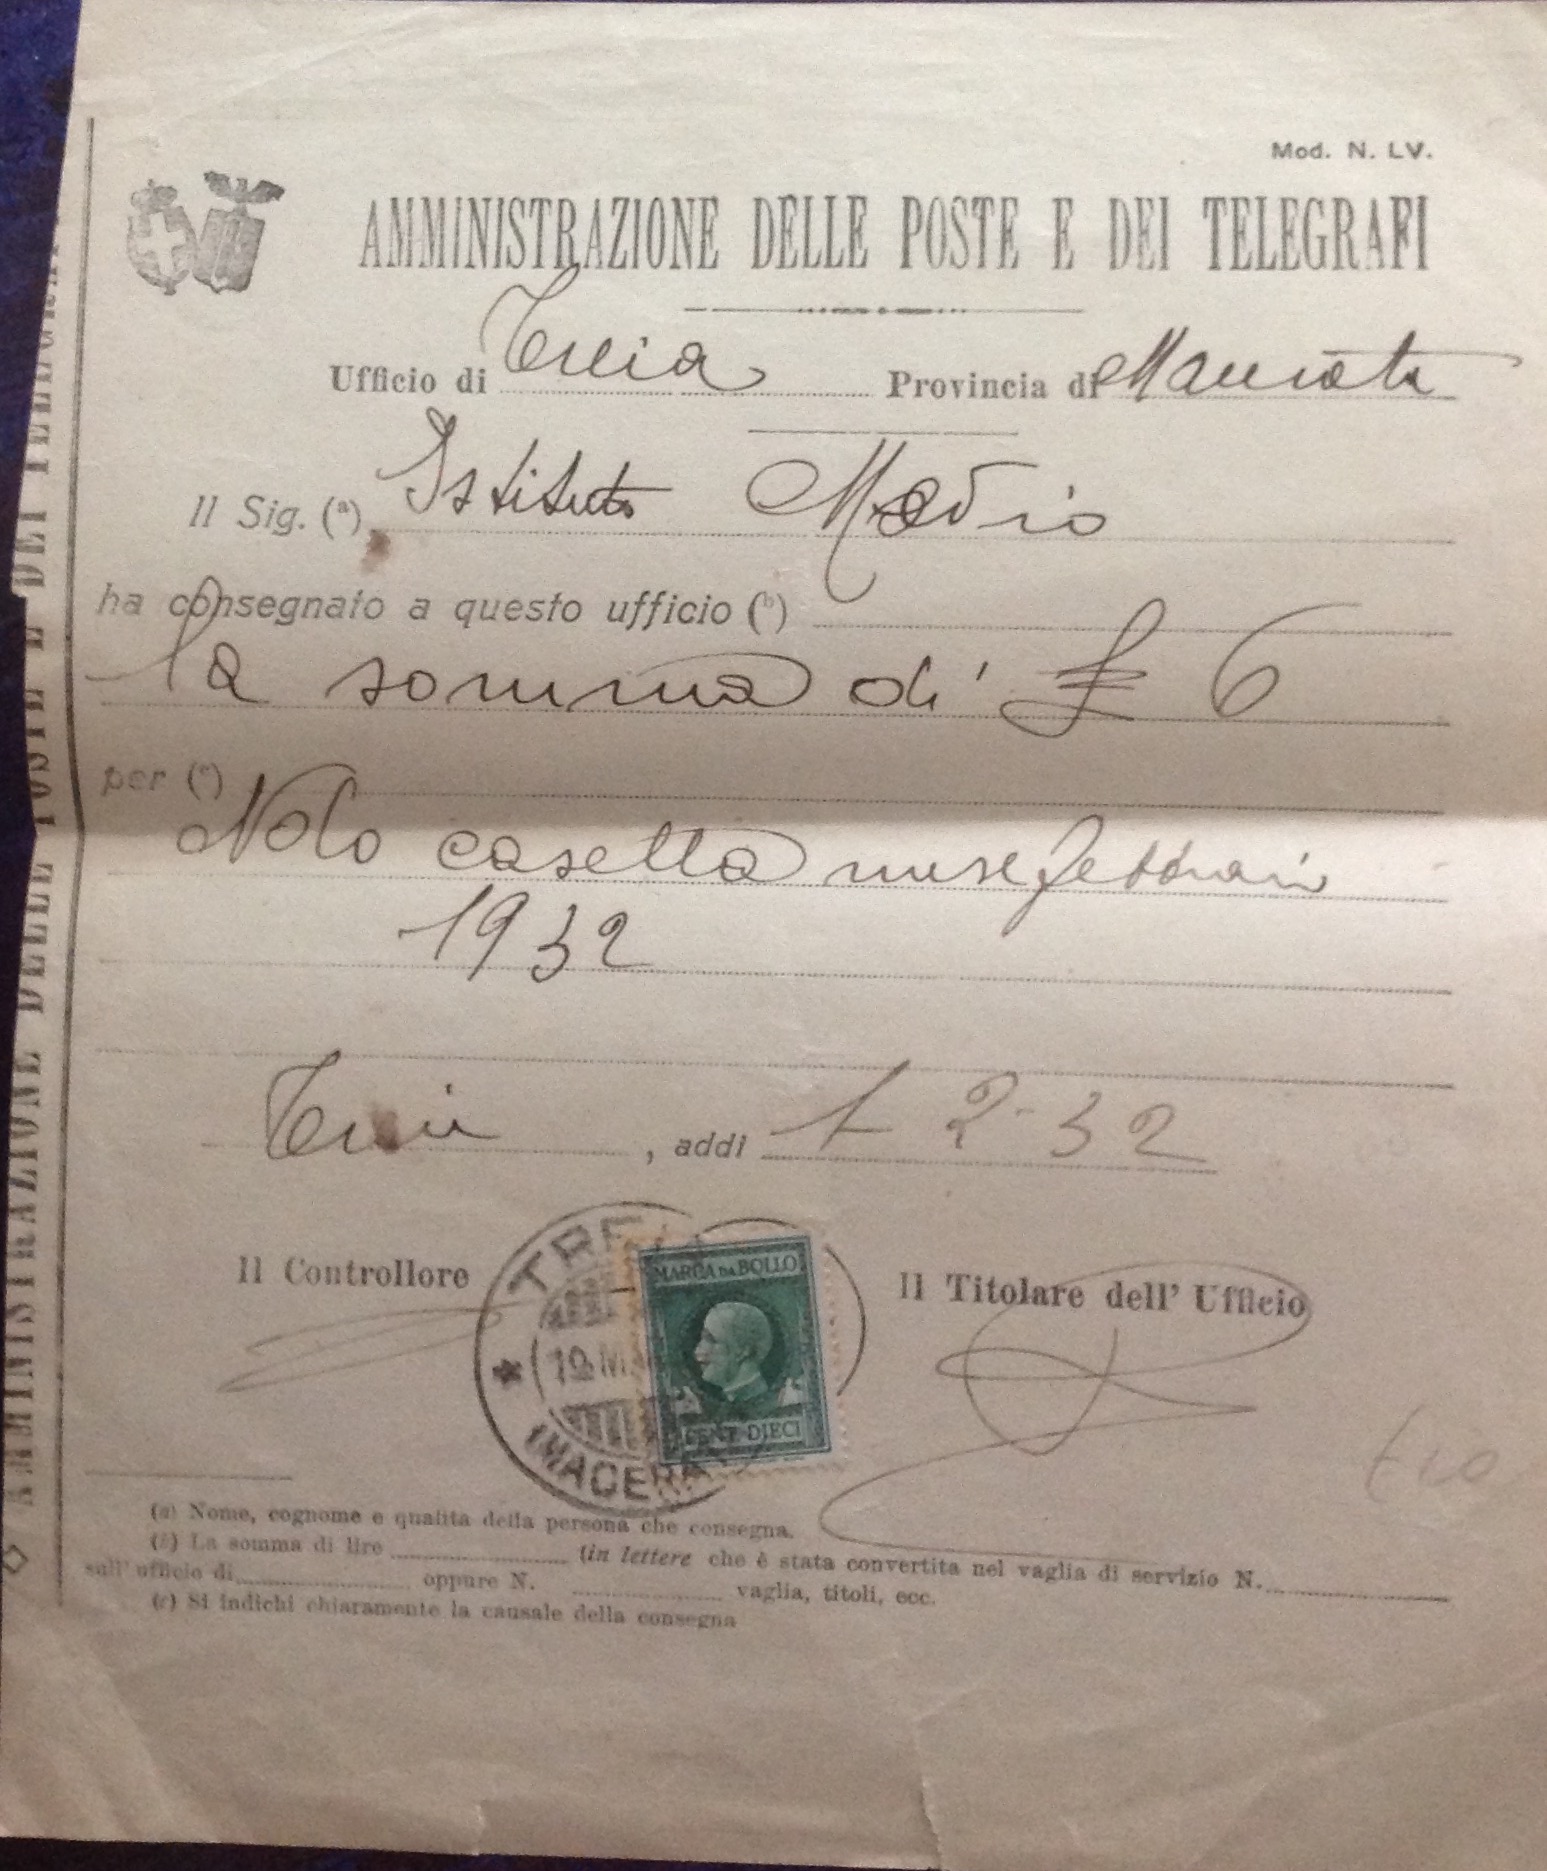 Mod. N. LV.
AMMINISTRAZIONE DELLE POSTE E DEI TELEGRAFI
Ufficio di Treia Provincia di Macerata
Il Sig. (a) Istituto Medio
ha consegnato a questo ufficio (b)
la somma di £ 6
per (c)
Nolo casella mese febbraio
1932
Treia, addì 1 2-32
Il Controllore
Il Titolare dell' Ufficio
TRE
MARCA DA BOLLO
CENT. DIECI
(MACERA
(a) Nome, cognome e qualità della persona che consegna.
(b) La somma di lire (in lettere che è stata convertita nel vaglia di servizio N.
sull'ufficio di oppure N. vaglia, titoli, ecc.
(c) Si indichi chiaramente la causale della consegna
AMMINISTRAZIONE DELLE POSTE E DEI TELEGRAFI